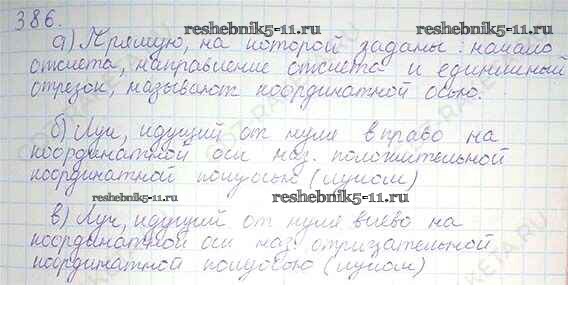 386.
reshebnik5-11.ru
reshebnik5-11.ru
а) Прямую, на которой заданы: начало
отсчета, направление отсчета и единичный
отрезок, называют координатной осью.
б) Луч, идущий от нуля вправо на
координатной оси наз. положительной
координатной полуосью (лучом)
reshebnik5-11.ru
reshebnik5-11.ru
в) Луч, идущий от нуля влево на
координатной оси наз. отрицательной
координатной полуосью (лучом)